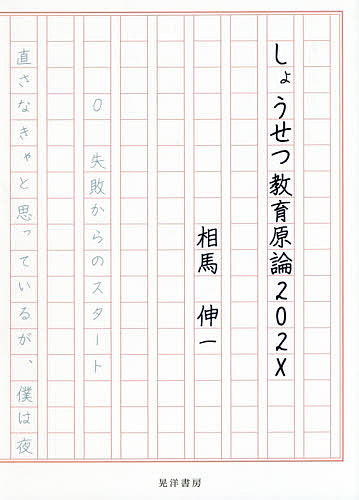 しょうせつ教育原論202X
相馬 伸一
0 失敗からのスタート
直さなきゃと思っているが、僕は夜
晃洋書房